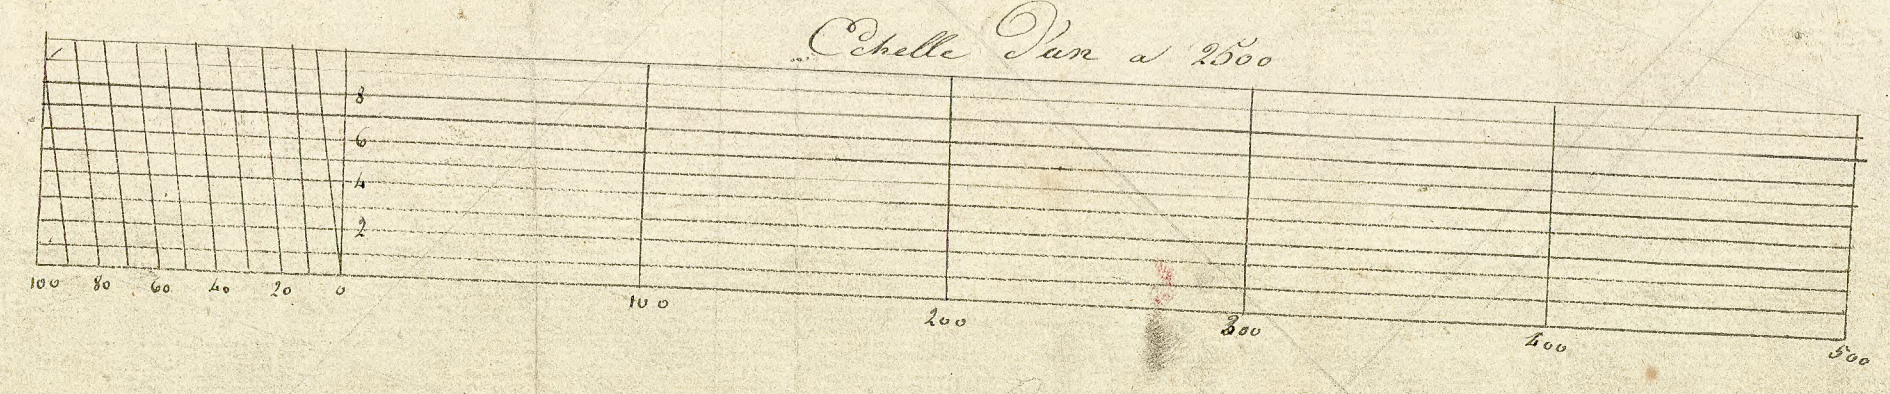 Echelle D'un a 2500
8
6
4
2
100 80 60 40 20 0 100 200 300 400 500